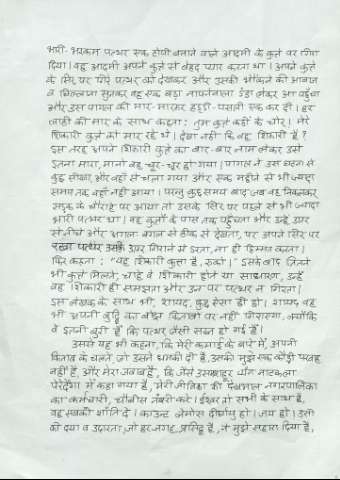 भारी-भरकम पत्थर एक टोपी बनाने वाले आदमी के कुत्ते पर गिरा
दिया। वह आदमी अपने कुत्ते से बेहद प्यार करता था। अपने कुत्ते
के सिर पर गिरे पत्थर को देखकर और उसकी भौंकने की आवाज
व चिल्लाना सुनकर वह एक बड़ा नापनेवाला डंडा लेकर आ पहुँचा
और उस पागल की मार-मारकर हड्डी-पसली एक कर दी। हर
लाठी की मार के साथ कहता : तुम कुत्ते कहीं के चोर। मेरे
शिकारी कुत्ते को मार रहे थे। देखा नहीं कि वह शिकारी है?
इस तरह अपने शिकारी कुत्ते का बार-बार नाम लेकर उसे
इतना मारा, मानो वह चूर-चूर हो गया। पागल ने उस घटना से
कुछ सीखा और वहाँ से चला गया और एक महीने से भी ज्यादा
समय तक वहाँ नहीं आया। परन्तु कुछ समय बाद जब वह निकलकर
सड़क के चौराहे पर आया तो उसके सिर पर पहले से भी ज्यादा
भारी पत्थर था। वह कुत्तों के पास तक पहुँचता और उन्हें ऊपर
से नीचे और अगल बगल से ठीक से देखता, पर अपने सिर पर
रखा पत्थर उसके ऊपर गिराने में डरता, ना ही हिम्मत करता।
फिर कहता : "यह शिकारी कुत्ता है, रुको।" इसके बाद जितने
भी कुत्ते मिलते, चाहे वे शिकारी होते या साधारण, उन्हें
वह शिकारी ही समझता और उन पर पत्थर न गिराता।
इस लेखक के साथ भी, शायद, कुछ ऐसा ही हो। शायद वह
भी अपनी बुद्धि का बोझ किताबों पर नहीं गिराएगा, क्योंकि
वे इतनी बुरी हैं कि पत्थर जैसी सख्त हो गई हैं।
उससे यह भी कहना, कि मेरी कमाई के बारे में, अपनी
किताब के चलते, जो उसने धमकी दी है, उसकी मुझे एक कौड़ी परवाह
नहीं है, और मेरा जवाब है, कि जैसे उस मशहूर नाटक
पेरेन्देंगा में कहा गया है, मेरी जीविका की देखभाल नगरपालिका
का कर्मचारी, चौबीस नंबरी करे। ईश्वर तो सभी के साथ है,
वह सबको शांति दे। काउन्ट लेमोस दीर्घायु हों। जय हो। उसी
की दया व उदारता, जो हर जगह प्रसिद्ध है, ने मुझे सहारा दिया है,